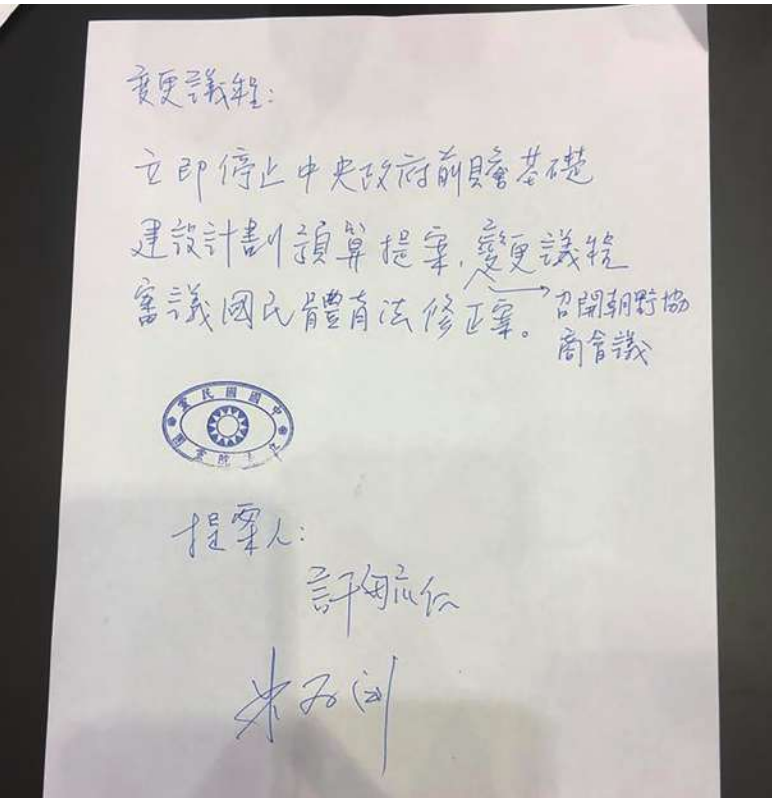 變更議程:
立即停止中央政府前瞻基礎
建設計劃預算提案,變更議程
審議國民體育法修正案。
召開朝野協
商會議
中國國民黨
立法院黨團
提案人:
許毓仁